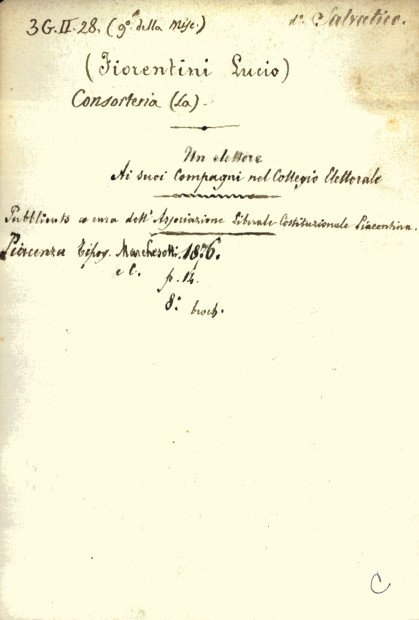 3G.II.28. (9º della Misc.)
dº C. Salvatico.
(Fiorentini Lucio)
Consorteria (La) -
Un elettore
Ai suoi Compagni nel Collegio Elettorale
Pubblicato a cura dell' Associazione Liberale Costituzionale Piacentina.
Piacenza Tipog. Marchesotti. 1876.
e C. p. 14.
8.º broch.
C